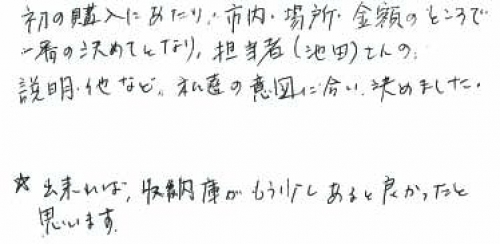 初の購入にあたり、市内・場所・金額のところで
一番の決めてとなり、担当者(池田)さんの、
説明・他など、私達の意図に合い、決めました。
☆出来れば、収納庫がもう少しあると良かったと
思います。